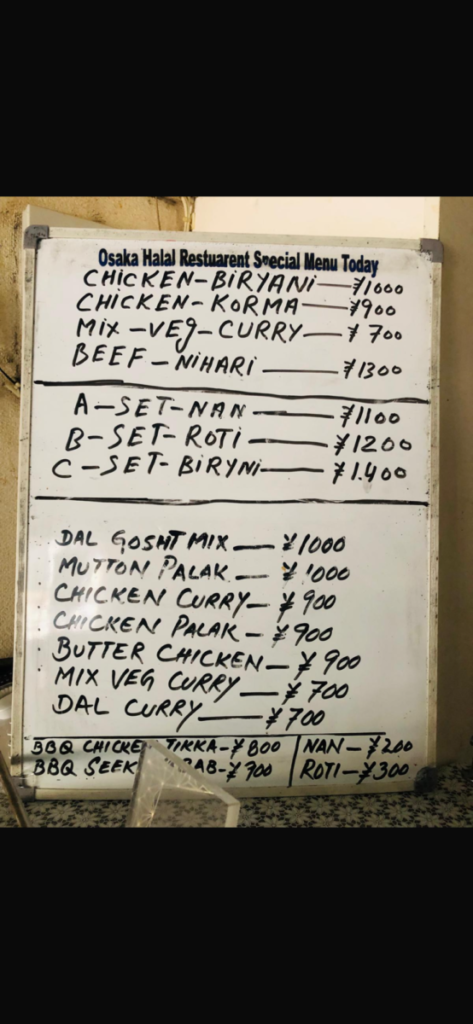 Osaka Halal Restuarent Special Menu Today
CHICKEN-BIRYANI—¥1000
CHICKEN-KORMA—¥900
MIX-VEG-CURRY—¥700
BEEF-NIHARI—¥1300
A-SET-NAN—¥1100
B-SET-ROTI—¥1200
C-SET-BIRYNI—¥1.400
DAL GOSHT MIX—¥1000
MUTTON PALAK—¥1000
CHICKEN CURRY—¥900
CHICKEN PALAK-¥900
BUTTER CHICKEN—¥900
MIX VEG CURRY—¥700
DAL CURRY—¥700
BBQ TIKKA-¥800 NAN-¥200
BBQ ROTI-¥300